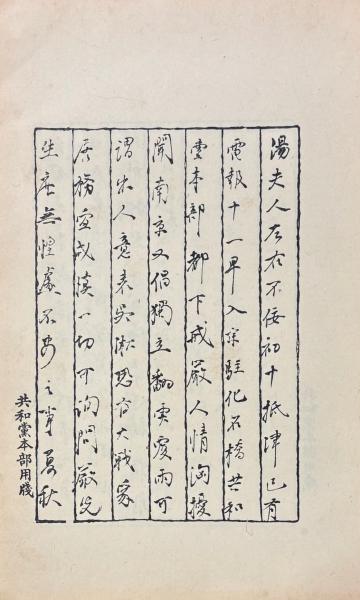 湯夫人左右不佞初十抵津已有
電報十一早入京駐化石橋共和
黨本部都下戒嚴人情洶擾
聞南京又倡獨立翻雲覆雨可
謂出人意表吳淞恐有大戰家
居務宜敬慎一切可詢問嚴先
生在無惶處不安之事夏秋
共和黨本部用牋